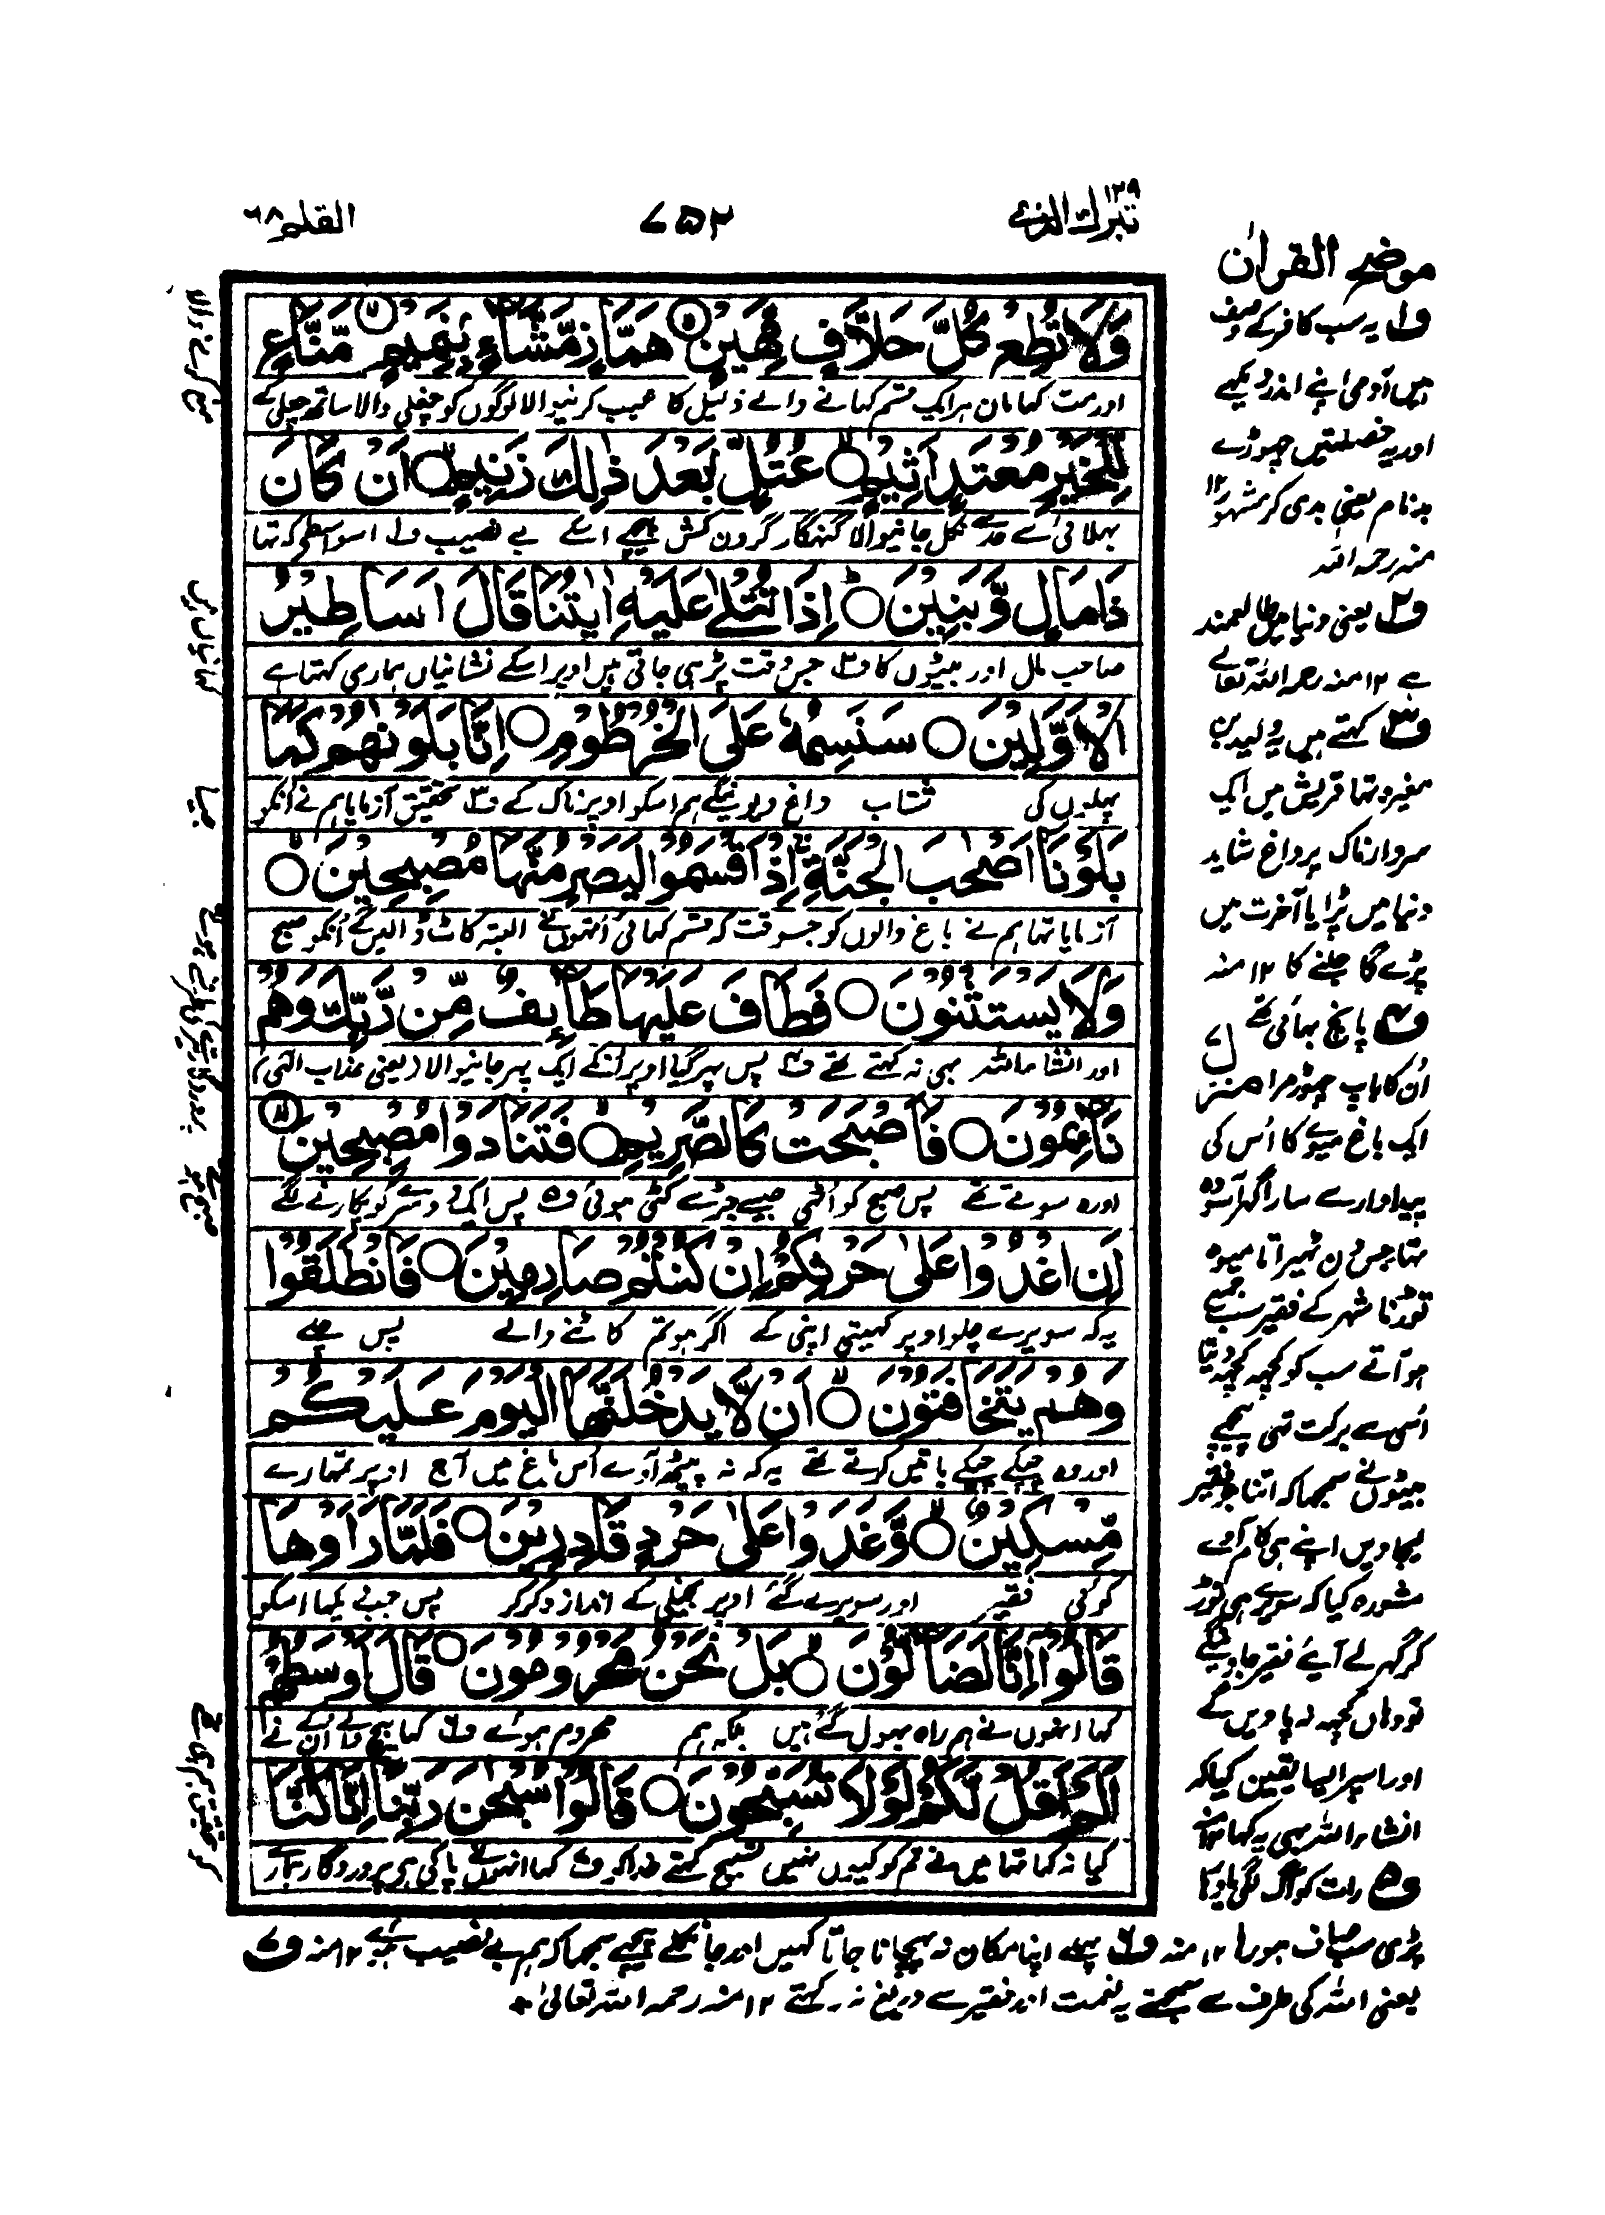 تبٰرك الذی ٢٩
٧٥٢
القلم ٦٨
وَلَا تُطِعْ كُلَّ حَلَّافٍ مَّهِينٍ ۝ هَمَّازٍ مَّشَّاءٍ بِنَمِيمٍ ۝ مَّنَّاعٍ
اور مت کہا مان ہر ایک قسم کہانے والے ذلیل کا عیب کرنیوالا لوگوں کو چغلی والا ساتھ چغلی کے
لِّلْخَيْرِ مُعْتَدٍ أَثِيمٍ ۝ عُتُلٍّ بَعْدَ ذٰلِكَ زَنِيمٍ ۝ أَنْ كَانَ
بہلائی سے حد سے نکل جانیوالا گنہگار گردن کش پیچھے اسکے بے نصیب ف١ اسواسطے کہ تہا
ذَا مَالٍ وَّبَنِينَ ۝ إِذَا تُتْلٰى عَلَيْهِ اٰيٰتُنَا قَالَ أَسَاطِيرُ
صاحب مال اور بیٹوں کا ف٢ جس وقت پڑہی جاتی ہیں اوپر اسکے نشانیاں ہماری کہتا ہے
الْأَوَّلِينَ ۝ سَنَسِمُهٗ عَلَى الْخُرْطُومِ ۝ إِنَّا بَلَوْنٰهُمْ كَمَا
پہلوں کی شتاب داغ دیوینگے ہم اسکو اوپر ناک کے ف٣ تحقیق آزمایا ہم نے انکو
بَلَوْنَا أَصْحٰبَ الْجَنَّةِ إِذْ أَقْسَمُوا لَيَصْرِمُنَّهَا مُصْبِحِينَ ۝
آزمایا تہا ہم نے باغ والوں کو جسوقت کہ قسم کہائی اُنہوں نے البتہ کاٹ ڈالیں گے اُنکو صبح
وَلَا يَسْتَثْنُونَ ۝ فَطَافَ عَلَيْهَا طَائِفٌ مِّنْ رَّبِّكَ وَهُمْ
اور انشاء اللہ بہی نہ کہتے تھے ف٤ پس پہر گیا اوپر اُنکے ایک پہر جانیوالا (یعنی عذاب الٰہی)
نَائِمُونَ ۝ فَأَصْبَحَتْ كَالصَّرِيمِ ۝ فَتَنَادَوْا مُصْبِحِينَ ۝
اور وہ سوتے تھے پس صبح کو اُٹہی جیسے جڑ سے کٹی ہوئی ف٥ پس ایک دوسرے کو پکارنے لگے
أَنِ اغْدُوا عَلٰى حَرْثِكُمْ إِنْ كُنْتُمْ صَارِمِينَ ۝ فَانْطَلَقُوا
یہ کہ سویرے چلو اوپر کہیتی اپنی کے اگر ہو تم کاٹنے والے پس چلے
وَهُمْ يَتَخَافَتُونَ ۝ أَنْ لَّا يَدْخُلَنَّهَا الْيَوْمَ عَلَيْكُمْ
اور وہ چپکے چپکے باتیں کرتے تھے یہ کہ نہ پیٹھ آوے اُس باغ میں آج اوپر تمہارے
مِّسْكِينٌ ۝ وَّغَدَوْا عَلٰى حَرْدٍ قَادِرِينَ ۝ فَلَمَّا رَأَوْهَا
کوئی فقیر اور سویرے گئے اوپر بخیلی کے انداز کر کر پس جب دیکہا اسکو
قَالُوا إِنَّا لَضَالُّونَ ۝ بَلْ نَحْنُ مَحْرُومُونَ ۝ قَالَ أَوْسَطُهُمْ
کہا انہوں نے ہم راہ بہول گئے ہیں بلکہ ہم محروم ہوئے ف٦ کہا بیچ والے انکے نے
أَلَمْ أَقُلْ لَّكُمْ لَوْلَا تُسَبِّحُونَ ۝ قَالُوا سُبْحٰنَ رَبِّنَا إِنَّا كُنَّا
کیا نہ کہا تہا میں نے تم کو کیوں نہیں تسبیح کہتے خدا کو ف٧ کہا انہوں نے پاکی ہی پروردگار ہمارے
موضح القراٰن
ف١ یہ سب کافر کے وصف
ہیں آدمی اپنے اندر دیکہے
اور یہ خصلتیں چہوڑے
بدنام یعنی بدی کر مشہور ١٢
منہ رحمہ اللہ
ف٢ یعنی دنیا میں طالعمند
ہے ١٢ منہ رحمہ اللہ تعالے
ف٣ کہتے ہیں یہ ولید بن
مغیرہ تہا قریش میں ایک
سردار ناک پر داغ شاید
دنیا میں پڑا یا آخرت میں
پڑے گا جلنے کا ١٢ منہ
ف٤ پانچ بہائی تھے
اُن کا باپ چہوڑ مرا
ایک باغ میوے کا اُس کی
پیداوار سے سارا گہر آسودہ
تہا جس دن ٹہیرا تا میوہ
توڑنا شہر کے فقیر سب جمع
ہو آتے سب کو کچہ کچہ دیتا
اُسی سے برکت تہی پیچھے
بیٹوں نے سمجہا کہ اتنا جو فقیر
لیجاویں اپنے ہی کام آوے
مشورہ کیا کہ سویرے ہی توڑ
کر گہر لے آئیے فقیر جاوینگے
تو وہاں کچہہ نہ پاویں گے
اور اسپر ایسا یقین کیا کہ
انشاء اللہ بہی نہ کہا
ف٥ رات کو آگ لگی یا
پڑی سب صاف ہو رہا ١٢ منہ ف٦ پہلے اپنا مکان نہ پہچانا جانا کہیں اور جا نکلے پیچھے سمجہا کہ ہم بے نصیب ہوئے ١٢ منہ ف٧
یعنی اللہ کی طرف سے سمجھتے یہ نعمت اور فقیر سے دریغ نہ کرتے ١٢ منہ رحمہ اللہ تعالیٰ